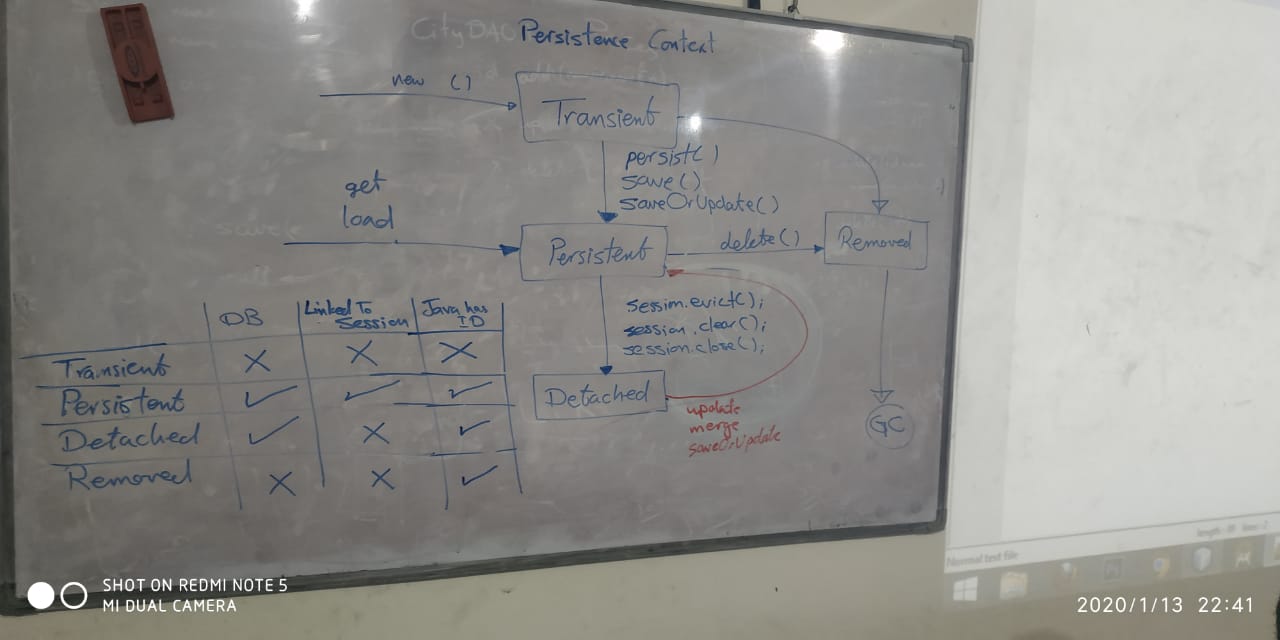 CityDAO Persistence Context
new ()
Transient
persist()
save()
saveOrUpdate()
get
load
Persistent
delete()
Removed
session.evict();
session.clear();
session.close();
Detached
update
merge
saveOrUpdate
GC
DB Linked To Session Java has ID
Transient X X X
Persistent ✓ ✓ ✓
Detached ✓ X ✓
Removed X X ✓
Normal text file
SHOT ON REDMI NOTE 5
MI DUAL CAMERA
2020/1/13 22:41